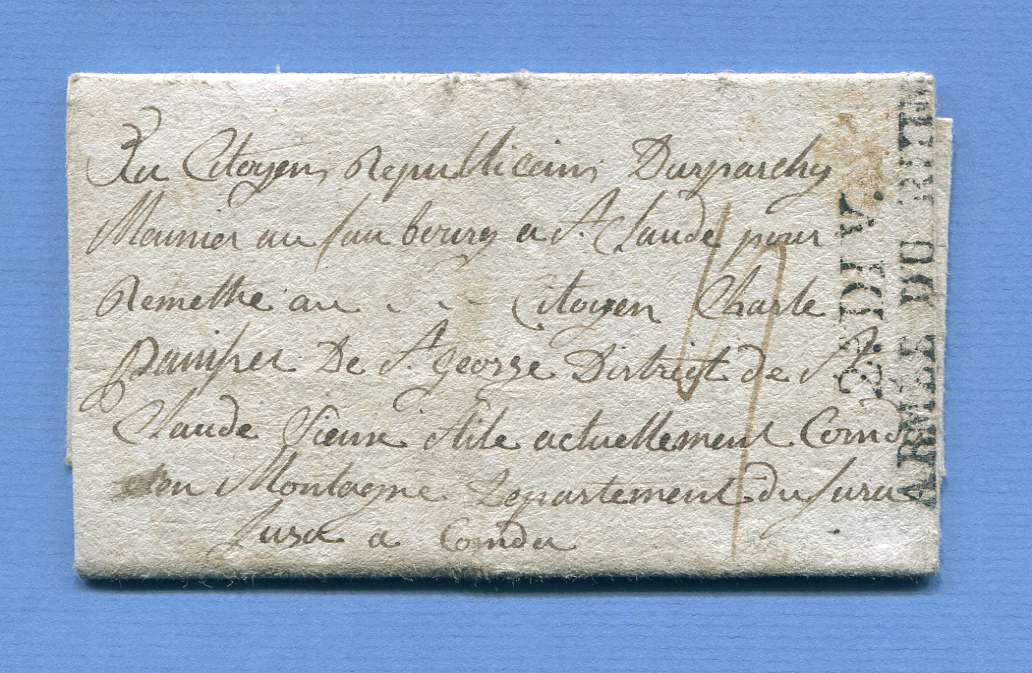 Au Citoyen Republicain Durparchy
Meunier au faubourg a St. Claude pour
Remettre au Citoyen Charle
De St. George District de St.
Claude actuellement Condé
Montagne Departement du Jura
Jura a Condé
2E. DIV.
ARMÉE DU RHIN